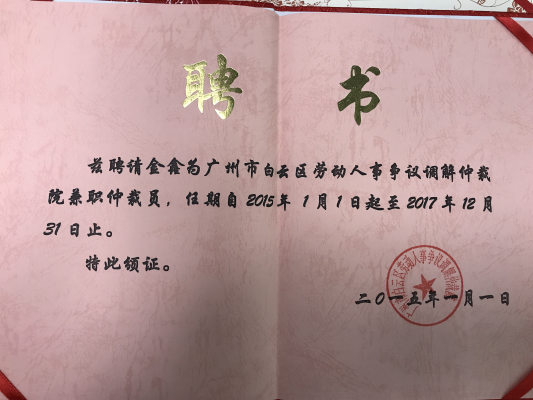 聘书
兹聘请金鑫为广州市白云区劳动人事争议调解仲裁
院兼职仲裁员，任期自2015年1月1日起至2017年12月
31日止。
特此领证。
二〇一五年一月一日